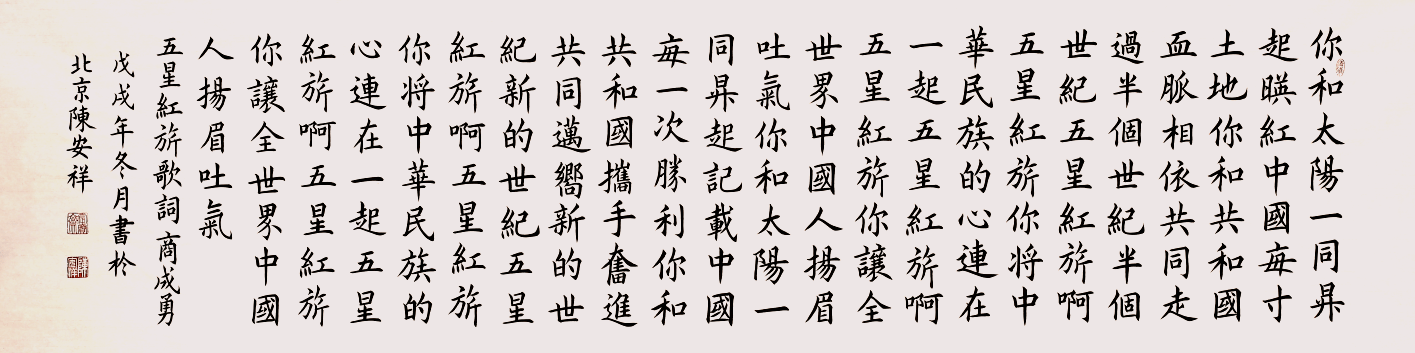 你和太陽一同昇
起暎紅中國每寸
土地你和共和國
血脈相依共同走
過半個世紀半個
世紀五星紅旂啊
五星紅旂你将中
華民族的心連在
一起五星紅旂啊
五星紅旂你讓全
世界中國人揚眉
吐氣你和太陽一
同昇起記載中國
每一次勝利你和
共和國攜手奮進
共同邁嚮新的世
紀新的世紀五星
紅旂啊五星紅旂
你将中華民族的
心連在一起五星
紅旂啊五星紅旂
你讓全世界中國
人揚眉吐氣
五星紅旂歌詞商成勇
戊戌年冬月書於
北京陳安祥